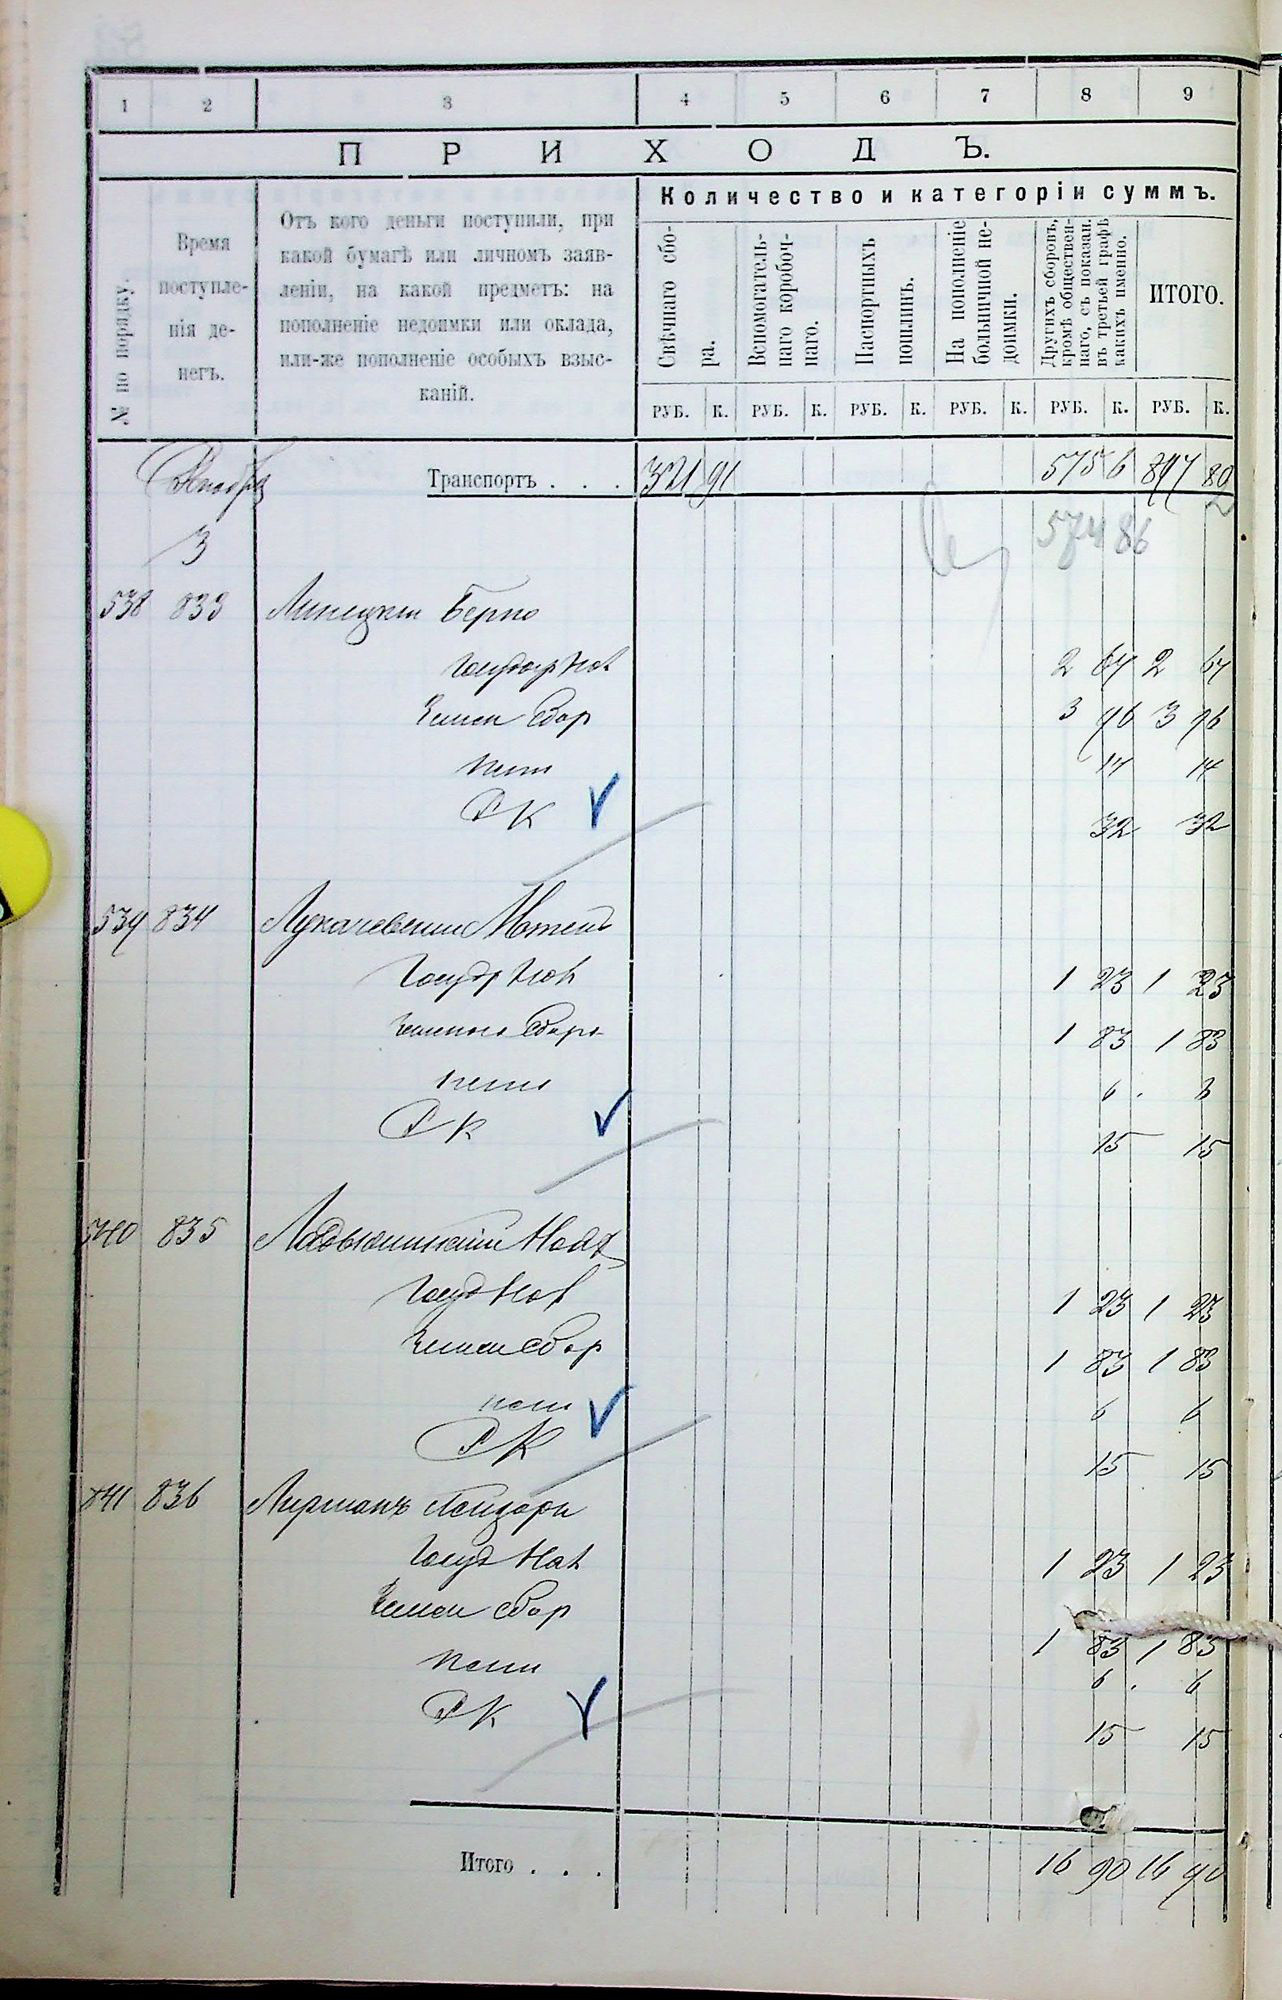 1 2 3 4 5 6 7 8 9
ПРИХОДЪ.
№ по порядку.
Время поступле-
нія де-
негъ.
Отъ кого деньги поступили, при
какой бумагѣ или личномъ заяв-
леніи, на какой предметъ: на
пополненіе недоимки или оклада,
или-же пополненіе особыхъ взыс-
каній.
Количество и категоріи суммъ.
Свѣчнаго сбо-
ра.
Вспомогатель-
наго коробоч-
наго.
Паспортныхъ
пошлинъ.
На пополненіе
больничной не-
доимки.
Другихъ сборовъ,
кромѣ обществен-
наго, съ показан.
въ третьей графѣ
какихъ именно.
ИТОГО.
РУБ. К. РУБ. К. РУБ. К. РУБ. К. РУБ. К. РУБ. К.
Декабрь
Транспортъ . . . 321 91 575 6 897 80
574 86
3
538 833 Липецкій Берко
2 64 2 64
Земск Сбор 3 96 3 96
пени 14 14
РК 32 32
539 834 Лукачевскій
Госуд Нал 1 23 1 23
Земского Сбора 1 83 1 83
пени 6 6
РК 15 15
540 835
Госуд Нал 1 23 1 23
Земск сбор 1 83 1 83
пени 6 6
РК 15 15
541 836 Лирманъ
Госуд Нал 1 23 1 23
Земск сбор 1 83 1 83
пени 6 6
РК 15 15
Итого . . . 16 90 16 90